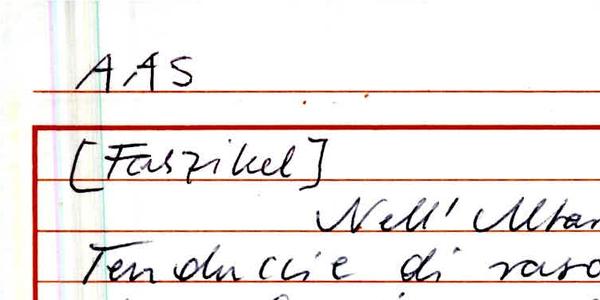 AAS
[Faszikel]
Nell' Altar
Tenduccie di raso